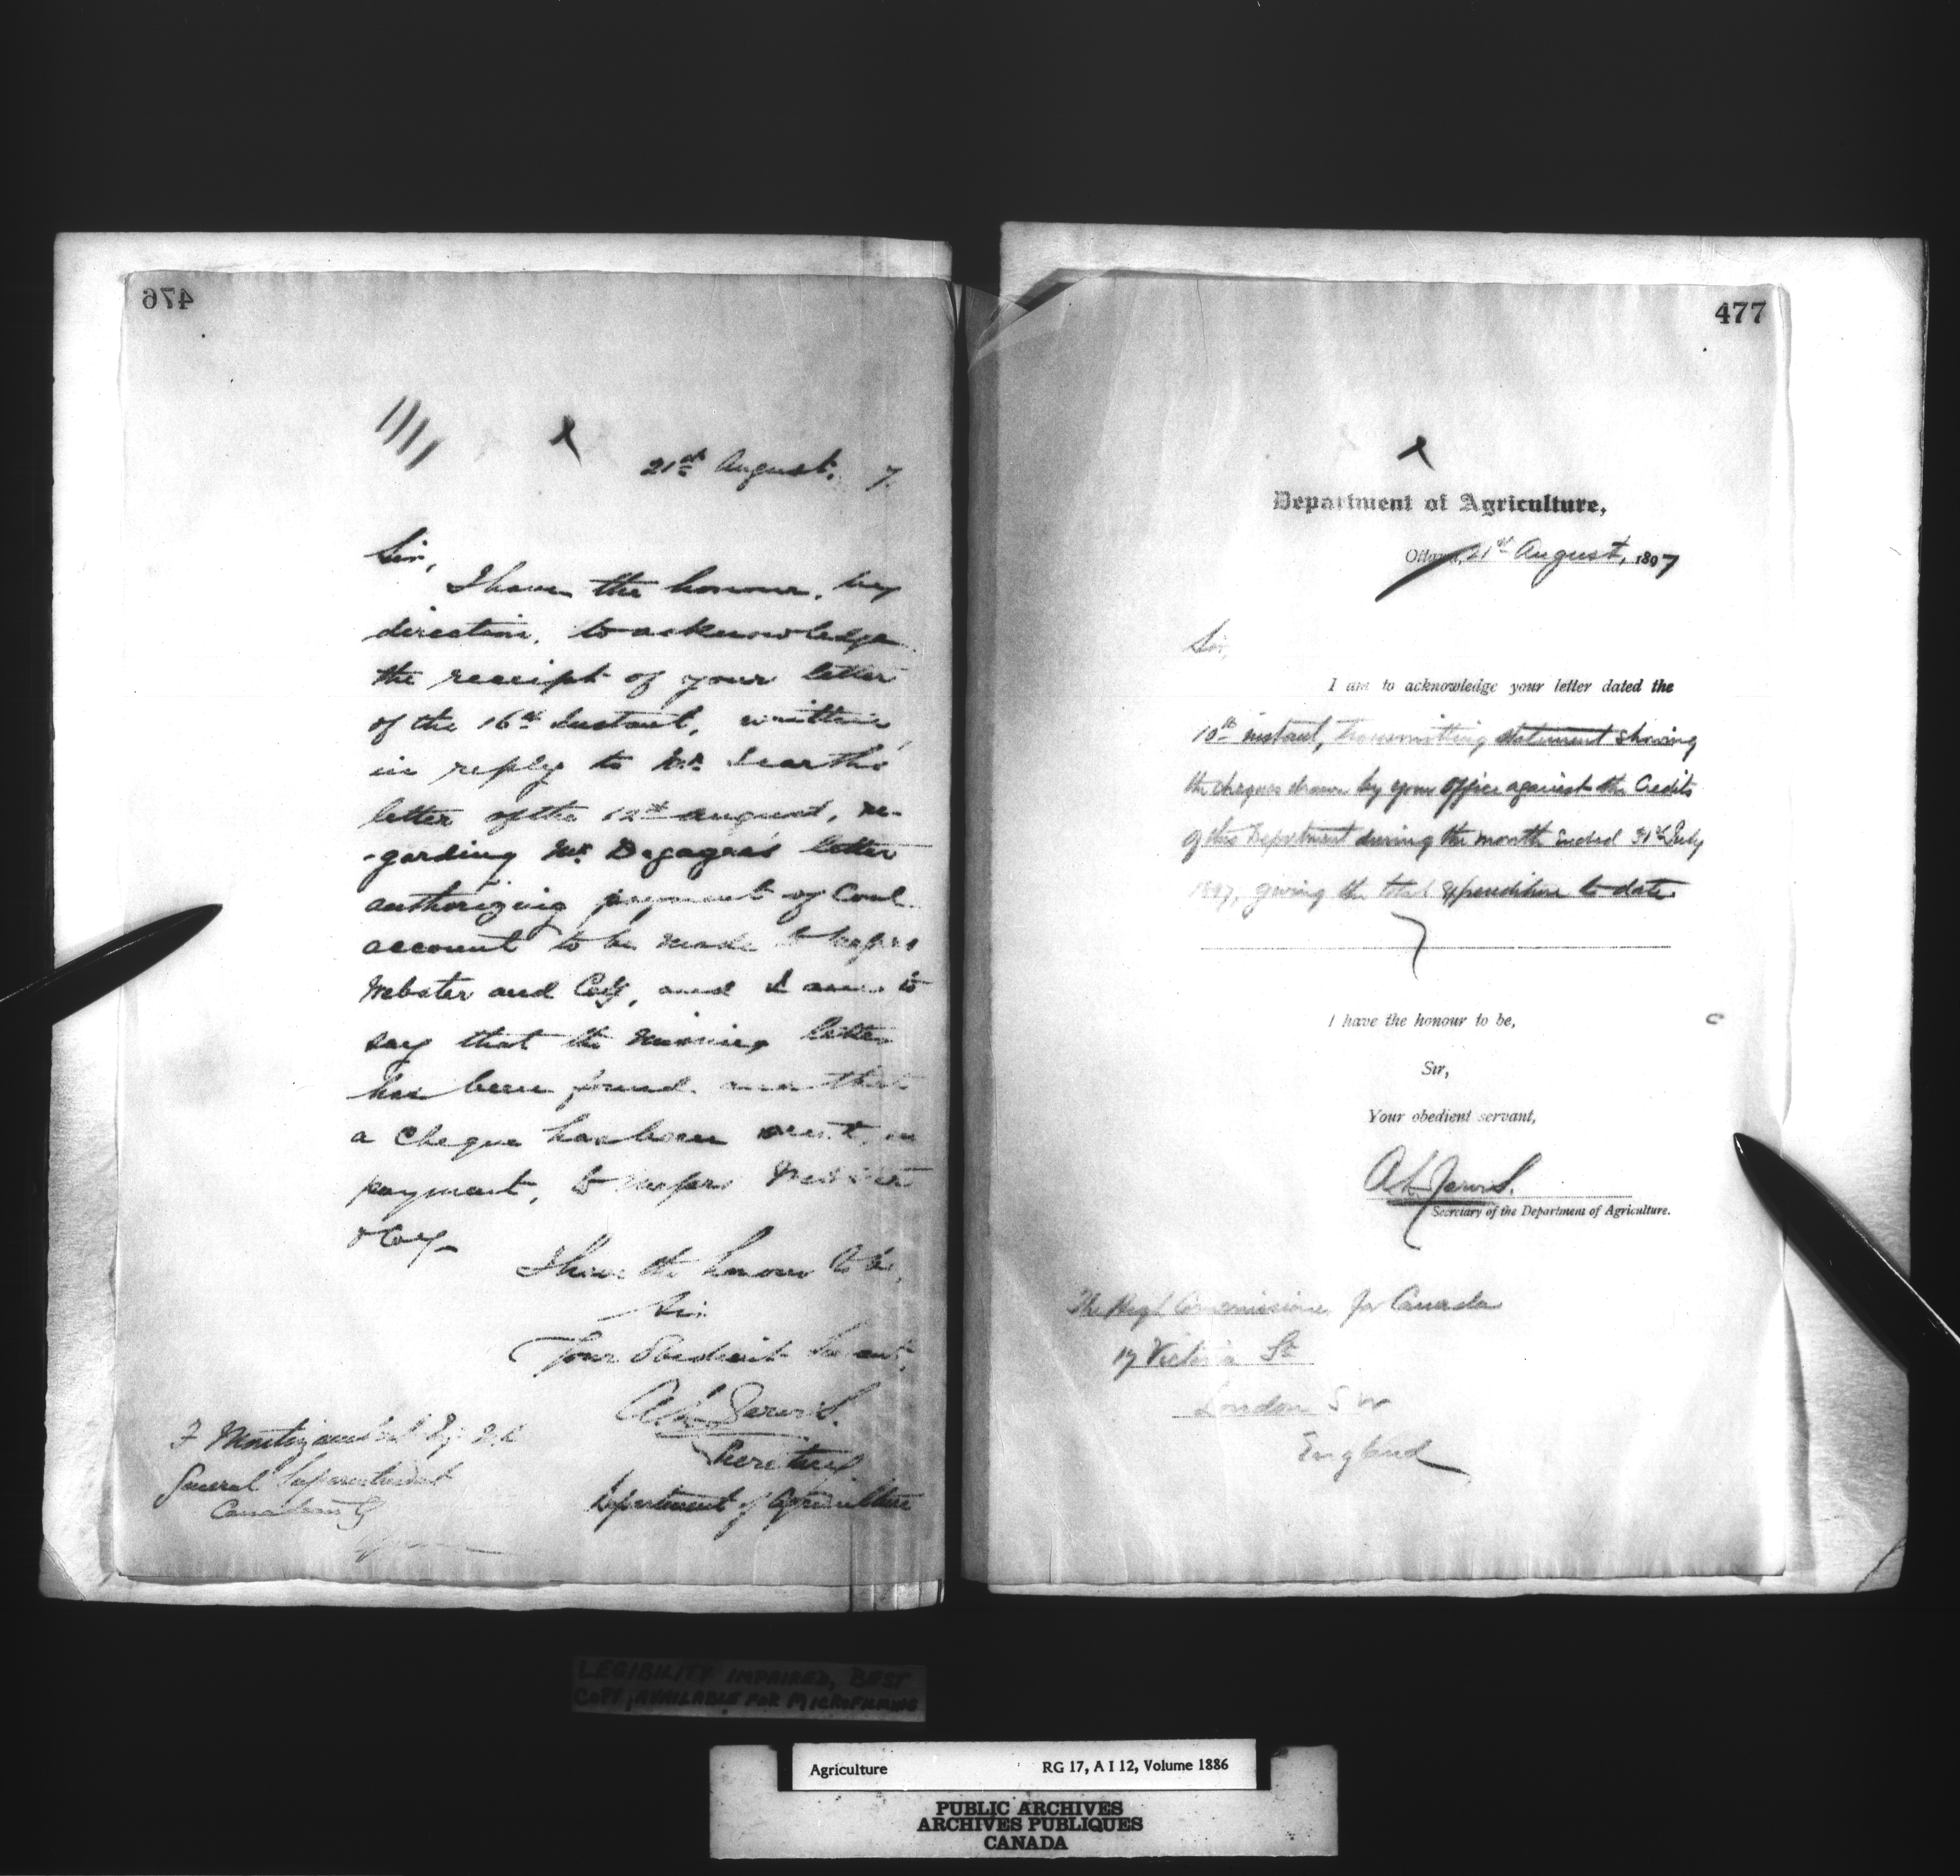 476
21st August, 7.
Sir,
I have the honour, by
direction, to acknowledge
the receipt of your letter
of the 16th Instant, written
in reply to Mr.
letter of the 12th August, re-
-garding Mr. letter
authorizing payment of Coal
account to be made to Messrs
Webster and Coy, and I am to
say that the missing letter
has been found and that
a Cheque has been sent, in
payment, to Messrs Webster
& Coy.
I have the honour to be,
Sir,
Your Obedient Servant,
A.L. Jarvis.
Secretary
Department of Agriculture
F Montizambert Esq
General Superintendent
477
Department of Agriculture,
Ottawa, 21st August, 1897
Sir,
I am to acknowledge your letter dated the
10th instant, transmitting statement showing
the cheques drawn by your Office against the Credits
of this Department during the month ended 31st July
1897, giving the total expenditure to date.
I have the honour to be,
Sir,
Your obedient servant,
A.L. Jarvis.
Secretary of the Department of Agriculture.
The High Commissioner for Canada
17 Victoria St
London S W
England
LEGIBILITY IMPAIRED, BEST
COPY, AVAILABLE FOR MICROFILMING
Agriculture RG 17, A I 12, Volume 1886
PUBLIC ARCHIVES
ARCHIVES PUBLIQUES
CANADA